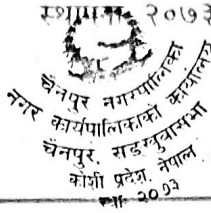 स्थापना २०७३
चैनपुर नगरपालिका
नगर कार्यपालिकाको कार्यालय
चैनपुर, सङखुवासभा
कोशी प्रदेश, नेपाल
२०७३